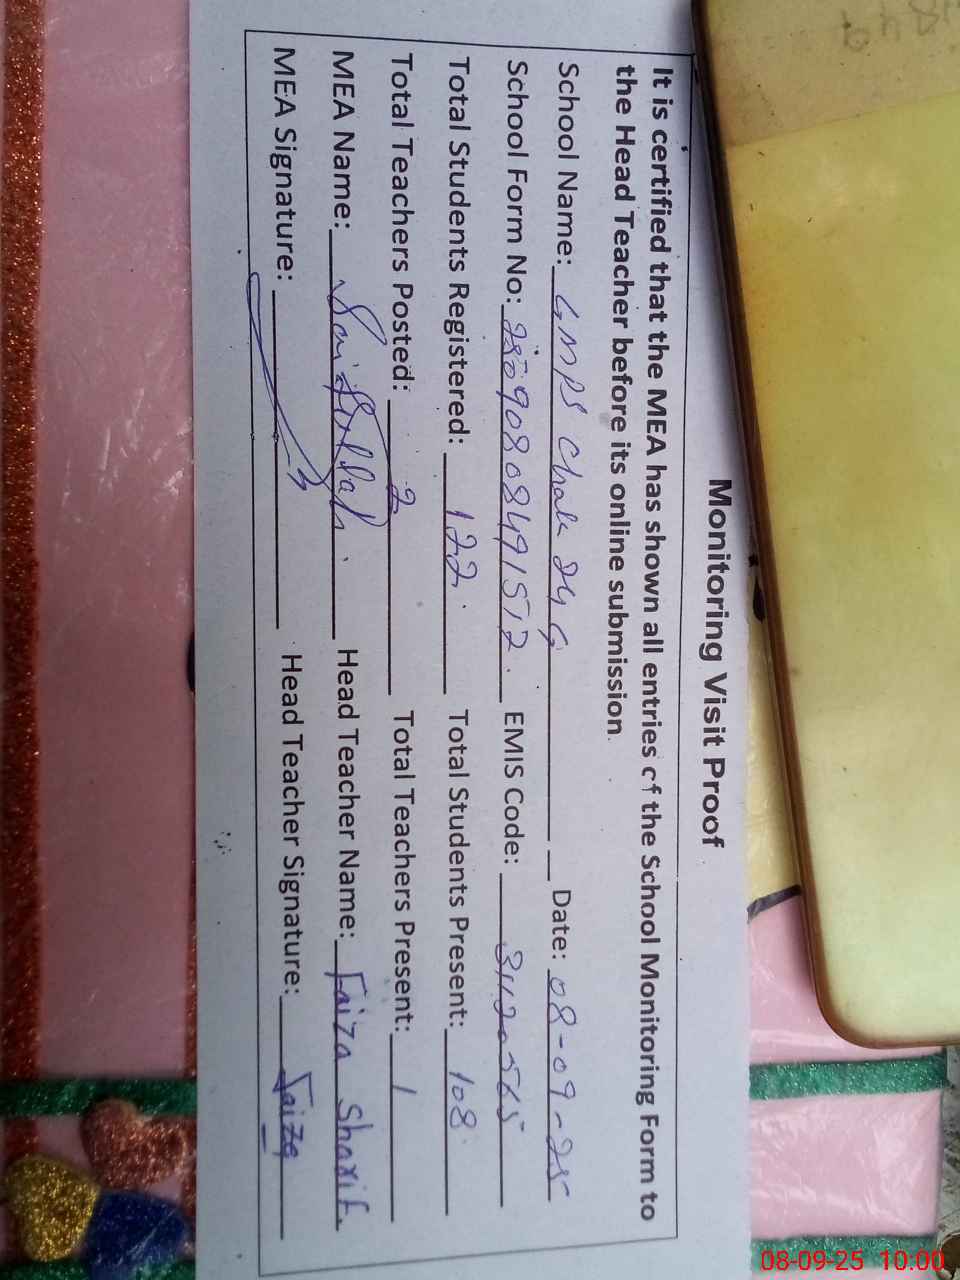 Monitoring Visit Proof
It is certified that the MEA has shown all entries of the School Monitoring Form to
the Head Teacher before its online submission.
School Name: GMPS Chak 24 G Date: 08-09-25
School Form No: EMIS Code: 31120565
Total Students Registered: 122. Total Students Present: 108
Total Teachers Posted: 2 Total Teachers Present: 1
MEA Name: Saif Ullah. Head Teacher Name: Faiza Sharif.
MEA Signature: Head Teacher Signature: Faiza
08-09-25 10.00